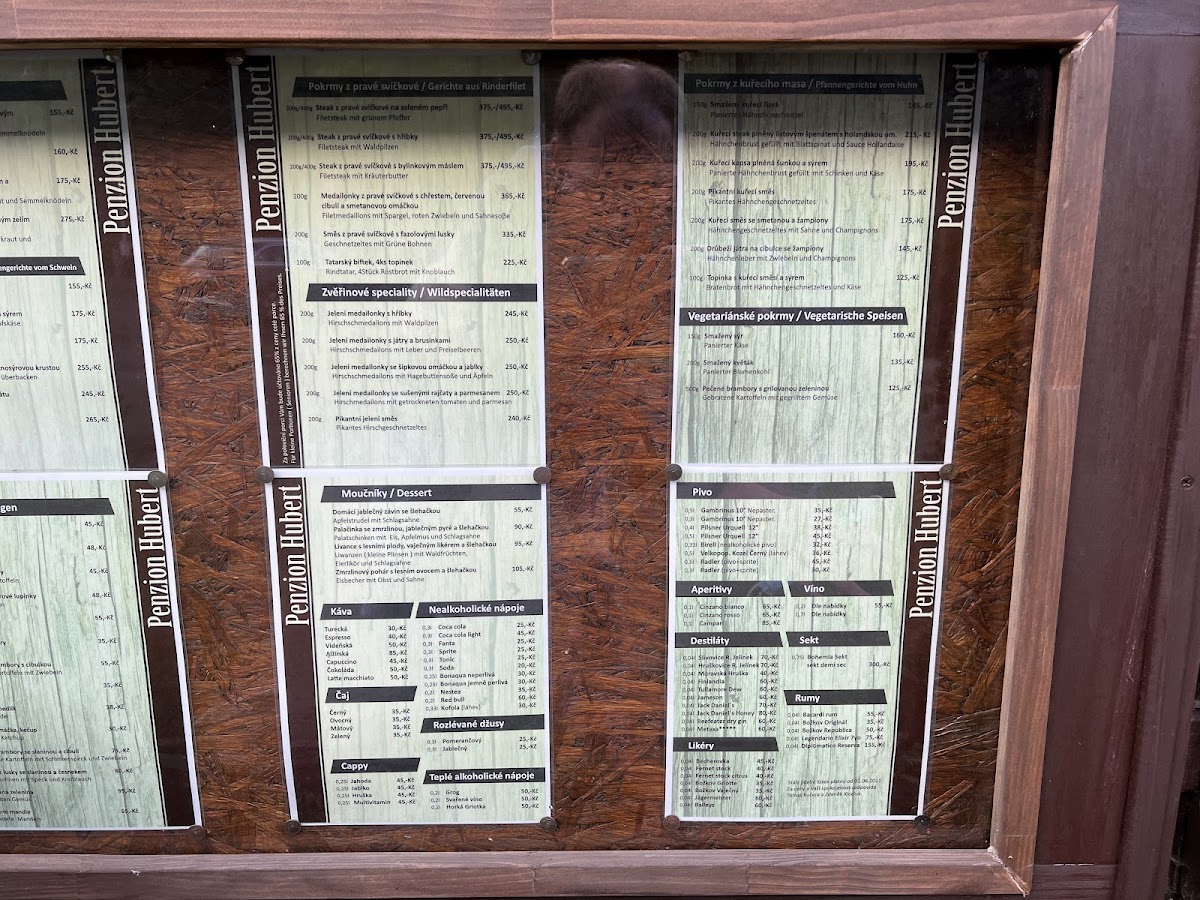 155,-Kč
mmelknödeln
160,-Kč
175,-Kč
ut und Semmelknödeln
ým zelím 275,-Kč
kraut und
engerichte vom Schwein
155,-Kč
sýrem 175,-Kč
fskäse
175,-Kč
nosýrovou krustou 255,-Kč
Überbacken
245,-Kč
265,-Kč
Penzion Hubert
gen
45,-Kč
48,-Kč
45,-Kč
toffeln
rové lupínky 48,-Kč
55,-Kč
35,-Kč
mbory s cibulkou 55,-Kč
artoffeln mit Zwiebeln
35,-Kč
38,-Kč
35,-Kč
Ketchup
ambory se slaninou a cibulí 75,-Kč
e Kartoffeln mit Schinkenspeck und Zwiebeln
lusky se slaninou a česnekem
ohnen mit Speck und Knoblauch
Penzion Hubert
Penzion Hubert
Pokrmy z pravé svíčkové / Gerichte aus Rinderfilet
200g/400g Steak z pravé svíčkové na zeleném pepři 375,-/495,-Kč
Filetsteak mit grünem Pfeffer
200g/400g Steak z pravé svíčkové s hříbky 375,-/495,-Kč
Filetsteak mit Waldpilzen
200g/400g Steak z pravé svíčkové s bylinkovým máslem 375,-/495,-Kč
Filetsteak mit Kräuterbutter
200g Medailonky z pravé svíčkové s chřestem, červenou 365,-Kč
cibulí a smetanovou omáčkou
Filetmedallions mit Spargel, roten Zwiebeln und Sahnesoße
200g Směs z pravé svíčkové s fazolovými lusky 335,-Kč
Geschnetzeltes mit Grüne Bohnen
100g Tatarský biftek, 4ks topinek 225,-Kč
Rindtatar, 4Stück Röstbrot mit Knoblauch
Zvěřinové speciality / Wildspecialitäten
200g Jelení medailonky s hříbky 245,-Kč
Hirschschmedailons mit Waldpilzen
200g Jelení medailonky s játry a brusinkami 250,-Kč
Hirschschmedailons mit Leber und Preiselbeeren
200g Jelení medailonky se šípkovou omáčkou a jablky 250,-Kč
Hirschschmedailons mit Hagebuttensoße und Äpfeln
200g Jelení medailonky se sušenými rajčaty a parmesanem 250,-Kč
Hirschschmedailons mit getrockneten tomaten und parmesan
200g Pikantní jelení směs 240,-Kč
Pikantes Hirschgeschnetzeltes
Za poloviční porci Vám bude účtováno 65% z ceny celé porce.
Für kleine Portionen ( Senioren ) berechnen wir Ihnen 65 % des Preises.
Penzion Hubert
Moučníky / Dessert
Domácí jablečný závin se šlehačkou 55,-Kč
Apfelstrudel mit Schlagsahne
Palačinka se zmrzlinou, jablečným pyré a šlehačkou 90,-Kč
Palatschinken mit Eis, Apfelmus und Schlagsahne
Lívance s lesními plody, vaječným likérem a šlehačkou 95,-Kč
Liwanzen ( kleine Plinsen ) mit Waldfrüchten,
Eierlikör und Schlagsahne
Zmrzlinový pohár s lesním ovocem a šlehačkou 105,-Kč
Eisbecher mit Obst und Sahne
Káva
Turecká 30,-Kč
Espresso 40,-Kč
Vídeňská 50,-Kč
Alžírská 85,-Kč
Capuccino 45,-Kč
Čokoláda 50,-Kč
Latte macchiato 50,-Kč
Čaj
Černý 35,-Kč
Ovocný 35,-Kč
Mátový 35,-Kč
Zelený 35,-Kč
Cappy
0,25l Jahoda 45,-Kč
0,25l Jablko 45,-Kč
0,25l Hruška 45,-Kč
0,25l Multivitamin 45,-Kč
Nealkoholické nápoje
0,3l Coca cola 25,-Kč
0,3l Coca cola light 45,-Kč
0,3l Fanta 25,-Kč
0,2l Sprite 25,-Kč
0,2l Tonic 25,-Kč
0,3l Soda 20,-Kč
0,25l Bonaqua neperlivá 30,-Kč
0,25l Bonaqua jemně perlivá 30,-Kč
0,2l Nestea 35,-Kč
0,2l Red bull 60,-Kč
0,33l Kofola (láhev) 30,-Kč
Rozlévané džusy
0,3l Pomerančový 25,-Kč
0,3l Jablečný 25,-Kč
Teplé alkoholické nápoje
0,2l Grog 50,-Kč
0,2l Svařené víno 50,-Kč
0,2l Horká Griotka 50,-Kč
Penzion Hubert
Pokrmy z kuřecího masa / Pfannengerichte vom Huhn
150g Smažený kuřecí řízek 145,-Kč
Paniertes Hähnchenschnetzel
200g Kuřecí steak plněný listovým špenátem s holandskou om. 215,-Kč
Hähnchenbrust gefüllt mit Blattspinat und Sauce Hollandaise
200g Kuřecí kapsa plněná šunkou a sýrem 195,-Kč
Panierte Hähnchenbrust gefüllt mit Schinken und Käse
200g Pikantní kuřecí směs 175,-Kč
Pikantes Hähnchengeschnetzeltes
200g Kuřecí směs se smetanou a žampiony 175,-Kč
Hähnchengeschnetzeltes mit Sahne und Champignons
200g Drůbeží játra na cibulce se žampiony 145,-Kč
Hähnchenleber mit Zwiebeln und Champignons
100g Topinka s kuřecí směsí a sýrem 125,-Kč
Bratenbrot mit Hähnchengeschnetzeltes und Käse
Vegetariánské pokrmy / Vegetarische Speisen
150g Smažený sýr 160,-Kč
Panierter Käse
200g Smažený květák 135,-Kč
Panierter Blumenkohl
300g Pečené brambory s grilovanou zeleninou 125,-Kč
Gebratene Kartoffeln mit gegrilltem Gemüse
Penzion Hubert
Pivo
0,5l Gambrinus 10° Nepaster. 35,-Kč
0,3l Gambrinus 10° Nepaster. 27,-Kč
0,4l Pilsner Urquell 12° 38,-Kč
0,5l Pilsner Urquell 12° 45,-Kč
0,33l Birell (nealkoholické pivo) 32,-Kč
0,5l Velkopop. Kozel Černý (láhev) 36,-Kč
0,5l Radler (pivo+sprite) 45,-Kč
0,3l Radler (pivo+sprite) 30,-Kč
Aperitivy
0,1l Cinzano bianco 65,-Kč
0,1l Cinzano rosso 65,-Kč
0,1l Campari 85,-Kč
Víno
0,2l Dle nabídky 55,-Kč
0,7l Dle nabídky
Destiláty
0,04l Slivovice R. Jelínek 70,-Kč
0,04l Hruškovice R. Jelínek 70,-Kč
0,04l Moravská Hruška 40,-Kč
0,04l Finlandia 60,-Kč
0,04l Tullamore Dew 60,-Kč
0,04l Jameson 60,-Kč
0,04l Jack Daniel´s 70,-Kč
0,04l Jack Daniel´s Honey 80,-Kč
0,04l Beefeater dry gin 60,-Kč
0,04l Metaxa***** 60,-Kč
Sekt
0,75l Bohemia Sekt
sekt demi sec 300,-Kč
Rumy
0,04l Bacardi rum 55,-Kč
0,04l Božkov Originál 35,-Kč
0,04l Božkov Republica 50,-Kč
0,04l Legendario Elixir 7yo 75,-Kč
0,04l Diplomatico Reserva 155,-Kč
Likéry
0,04l Becherovka 45,-Kč
0,04l Fernet stock 40,-Kč
0,04l Fernet stock citrus 40,-Kč
0,04l Božkov Griotte 35,-Kč
0,04l Božkov Vaječný 35,-Kč
0,04l Jägermeister 60,-Kč
0,04l Baileys 60,-Kč
Penzion Hubert